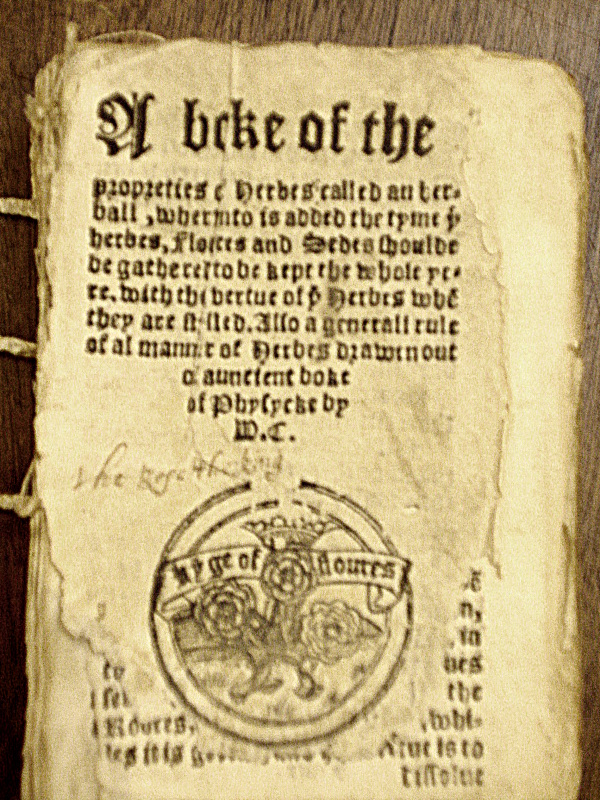 A boke of the
propreties & Herbes called an her-
ball, wherunto is added the tyme þͤ
herbes, Floures and Sedes shoulde
be gathered to be kept the whole ye-
re, with the vertue of þͤ Herbes whē
they are stilled. Also a generall rule
of al manner of Herbes drawen out
of auncient boke
of Physycke by
W.C.
The Rose the king
kyge of floures
ē
n,
to in
ues
the
Floures, whi-
les it is to
dissolue